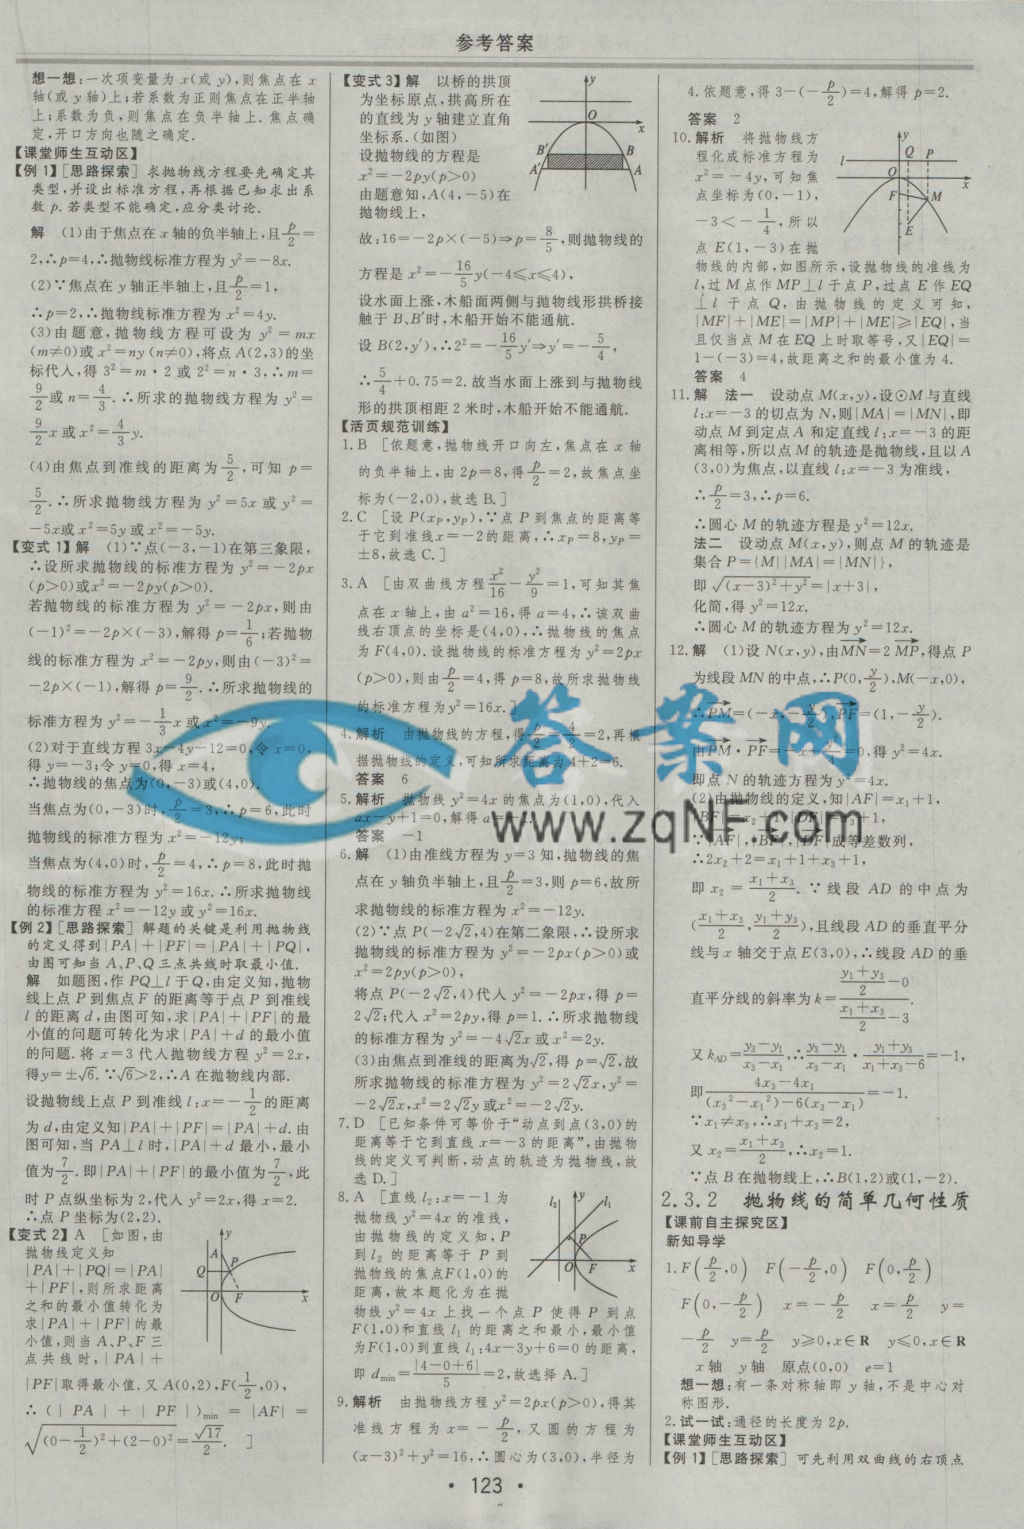 参考答案
想一想:一次项变量为 x(或 y),则焦点在 x
轴(或 y 轴)上;若系数为正则焦点在正半轴
上;系数为负,则焦点在负半轴上.焦点确
定,开口方向也随之确定.
【课堂师生互动区】
【例1】[思路探索] 求抛物线方程要先确定其
类型,并设出标准方程,再根据已知求出系
数 p.若类型不能确定,应分类讨论.
解 (1)由于焦点在 x 轴的负半轴上,且p/2=
2,∴p=4,∴抛物线标准方程为 y²=-8x.
(2)∵焦点在 y 轴正半轴上,且p/2=1,
∴p=2,∴抛物线标准方程为 x²=4y.
(3)由题意,抛物线方程可设为 y²=mx
(m≠0)或 x²=ny(n≠0),将点 A(2,3)的坐
标代入,得 3²=m·2 或 2²=n·3,∴m=
9/2或 n=4/3.∴所求的抛物线方程为 y²=
9/2x 或 x²=4/3y.
(4)由焦点到准线的距离为5/2,可知 p=
5/2.∴所求抛物线方程为 y²=5x 或 y²=
-5x或 x²=5y 或 x²=-5y.
【变式1】解 (1)∵点(-3,-1)在第三象限,
∴设所求抛物线的标准方程为 y²=-2px
(p>0)或x²=-2py(p>0).
若抛物线的标准方程为 y²=-2px,则由
(-1)²=-2p×(-3),解得 p=1/6;若抛物
线的标准方程为 x²=-2py,则由(-3)²=
-2p×(-1),解得 p=9/2.∴所求抛物线的
标准方程为 y²=-1/3x 或 x²=-9y.
(2)对于直线方程 3x-4y-12=0,令 x=0,
得 y=-3;令 y=0,得 x=4,
∴抛物线的焦点为(0,-3)或(4,0).
当焦点为(0,-3)时,p/2=3,∴p=6,此时
抛物线的标准方程为 x²=-12y;
当焦点为(4,0)时,p/2=4,∴p=8,此时抛
物线的标准方程为 y²=16x.∴所求抛物线
的标准方程为 x²=-12y 或 y²=16x.
【例2】[思路探索] 解题的关键是利用抛物线
的定义得到|PA|+|PF|=|PA|+|PQ|,
由图可知当 A、P、Q 三点共线时取最小值.
解 如题图,作 PQ⊥l 于 Q,由定义知,抛物
线上点 P 到焦点 F 的距离等于点 P 到准线
l 的距离 d,由图可知,求|PA|+|PF|的最
小值的问题可转化为求|PA|+d 的最小值
的问题.将 x=3 代入抛物线方程 y²=2x,
得y=±√6.∵√6>2,∴A 在抛物线内部.
设抛物线上点 P 到准线 l:x=-1/2的距离
为 d,由定义知|PA|+|PF|=|PA|+d.由
图可知,当 PA⊥l 时,|PA|+d 最小,最小
值为7/2.即|PA|+|PF|的最小值为7/2,此
时 P 点纵坐标为 2,代入 y²=2x,得 x=2.
∴点 P 坐标为(2,2).
【变式2】A [如图,由
抛物线定义知
|PA|+|PQ|=|PA|
+|PF|,则所求距离
之和的最小值转化为
求|PA|+|PF|的最
小值,则当 A、P、F 三
点共线时,|PA|+
|PF|取得最小值.又 A(0,2),F(1/2,0),
∴(|PA|+|PF|)min=|AF|=
√((0-1/2)²+(2-0)²)=√17/2. ]
y
A
P
Q
O
F
x
【变式3】解 以桥的拱顶
为坐标原点,拱高所在
的直线为 y 轴建立直角
坐标系.(如图)
设抛物线的方程是
x²=-2py(p>0)
由题意知,A(4,-5)在
抛物线上,
故:16=-2p×(-5)⇒p=8/5,则抛物线的
方程是 x²=-16/5y(-4≤x≤4),
设水面上涨,木船面两侧与抛物线形拱桥接
触于 B、B′时,木船开始不能通航.
设 B(2,y′),∴2²=-16/5y′⇒y′=-5/4,
∴5/4+0.75=2.故当水面上涨到与抛物线
形的拱顶相距 2 米时,木船开始不能通航.
y
O
x
B′
B
A′
A
【活页规范训练】
1.B [依题意,抛物线开口向左,焦点在 x 轴
的负半轴上,由 2p=8,得p/2=2,故焦点坐
标为(-2,0),故选 B.]
2.C [设 P(xP,yP),∵点 P 到焦点的距离等
于它到准线 x=-2 的距离,∴xP=8,yP=
±8,故选 C.]
3.A [由双曲线方程x²/16-y²/9=1,可知其焦
点在 x 轴上,由 a²=16,得 a=4,∴该双曲
线右顶点的坐标是(4,0),∴抛物线的焦点
为 F(4,0).设抛物线的标准方程为 y²=2px
(p>0),则由p/2=4,得 p=8,故所求抛物线
的标准方程为 y²=16x.]
4.解析 由抛物线的方程,得p/2=4/2=2,再根
据抛物线的定义,可知所求距离为 4+2=6.
答案 6
5.解析 抛物线 y²=4x 的焦点为(1,0),代入
ax-y+1=0,解得 a=-1.
答案 -1
6.解 (1)由准线方程为 y=3 知,抛物线的焦
点在 y 轴负半轴上,且p/2=3,则 p=6,故所
求抛物线的标准方程为 x²=-12y.
(2)∵点 P(-2√2,4)在第二象限,∴设所求
抛物线的标准方程为 y²=-2px(p>0)或
x²=2py(p>0),
将点 P(-2√2,4)代入 y²=-2px,得 p=
2√2;代入 x²=2py,得 p=1.∴所求抛物线
的标准方程为 y²=-4√2x 或 x²=2y.
(3)由焦点到准线的距离为√2,得 p=√2,故
所求抛物线的标准方程为 y²=2√2x,y²=
-2√2x,x²=2√2y 或x²=-2√2y.
7.D [已知条件可等价于“动点到点(3,0)的
距离等于它到直线 x=-3 的距离”,由抛物
线的定义可判断,动点的轨迹为抛物线,故
选 D.]
8.A [直线 l₂:x=-1 为
抛物线 y²=4x 的准线,
由抛物线的定义知,P
到 l₂ 的距离等于 P 到
抛物线的焦点F(1,0)的
距离,故本题化为在抛
物线 y²=4x 上找一个点 P 使得 P 到点
F(1,0)和直线 l₁ 的距离之和最小,最小值
为F(1,0)到直线 l₁:4x-3y+6=0 的距离,
即 dmin=|4-0+6|/5=2,故选择 A.]
l₂
y
l₁
P
O
F
x
9.解析 由抛物线方程 y²=2px(p>0),得其
准线方程为 x=-p/2,又圆的方程为
(x-3)²+y²=16,∴圆心为(3,0),半径为
4.依题意,得 3-(-p/2)=4,解得 p=2.
答案 2
10.解析 将抛物线方
程化成标准方程为
x²=-4y,可知焦
点坐标为(0,-1),
-3<-1/4,所以
点 E(1,-3)在抛
物线的内部,如图所示,设抛物线的准线为
l,过 M 点作 MP⊥l 于点 P,过点 E 作 EQ
⊥l 于点 Q,由抛物线的定义可知,
|MF|+|ME|=|MP|+|ME|≥|EQ|,当
且仅当点 M 在 EQ 上时取等号,又|EQ|=
1-(-3)=4,故距离之和的最小值为 4.
答案 4
y
Q
P
l
O
x
F
M
E
11.解 法一 设动点 M(x,y),设⊙M 与直线
l:x=-3 的切点为 N,则|MA|=|MN|,即
动点 M 到定点 A 和定直线 l:x=-3 的距
离相等,所以点 M 的轨迹是抛物线,且以 A
(3,0)为焦点,以直线 l:x=-3 为准线,
∴p/2=3,∴p=6.
∴圆心 M 的轨迹方程是 y²=12x.
法二 设动点 M(x,y),则点 M 的轨迹是
集合 P={M||MA|=|MN|},
即√((x-3)²+y²)=|x+3|,
化简,得 y²=12x.
∴圆心 M 的轨迹方程为 y²=12x.
12.解 (1)设 N(x,y),由MN=2 MP,得点 P
为线段 MN 的中点,∴P(0,y/2),M(-x,0),
∴PM=(-x,-y/2),PF=(1,-y/2).
由PM·PF=-x+y²/4=0,得 y²=4x.
即点 N 的轨迹方程为 y²=4x.
(2)由抛物线的定义,知|AF|=x₁+1,
|BF|=x₂+1,|DF|=x₃+1,
∵|AF|,|BF|,|DF|成等差数列,
∴2x₂+2=x₁+1+x₃+1,
即 x₂=(x₁+x₃)/2.∵线段 AD 的中点为
((x₁+x₃)/2,(y₁+y₃)/2),且线段 AD 的垂直平分
线与 x 轴交于点 E(3,0),∴线段 AD 的垂
直平分线的斜率为 k=((y₁+y₃)/2-0)/((x₁+x₃)/2-3).
又 kAD=(y₃-y₁)/(x₃-x₁),∴(y₃-y₁)/(x₃-x₁)·(y₁+y₃)/(x₁+x₃-6)=-1,
即(4x₃-4x₁)/((x₃²-x₁²)-6(x₃-x₁))=-1.
∵x₁≠x₃,∴x₁+x₃=2,
又 x₂=(x₁+x₃)/2,∴x₂=1.
∵点 B 在抛物线上,∴B(1,2)或(1,-2).
2.3.2 抛物线的简单几何性质
【课前自主探究区】
新知导学
1.F(p/2,0) F(-p/2,0) F(0,p/2)
F(0,-p/2) x=-p/2 x=p/2 y=
-p/2 y=p/2 y≥0,x∈R y≤0,x∈R
x轴 y轴 原点(0,0) e=1
想一想:有一条对称轴即 y 轴,不是中心对
称图形.
2.试一试:通径的长度为 2p.
【课堂师生互动区】
【例1】[思路探索] 可先利用双曲线的右顶点
答案网
www.zqNF.com
· 123 ·